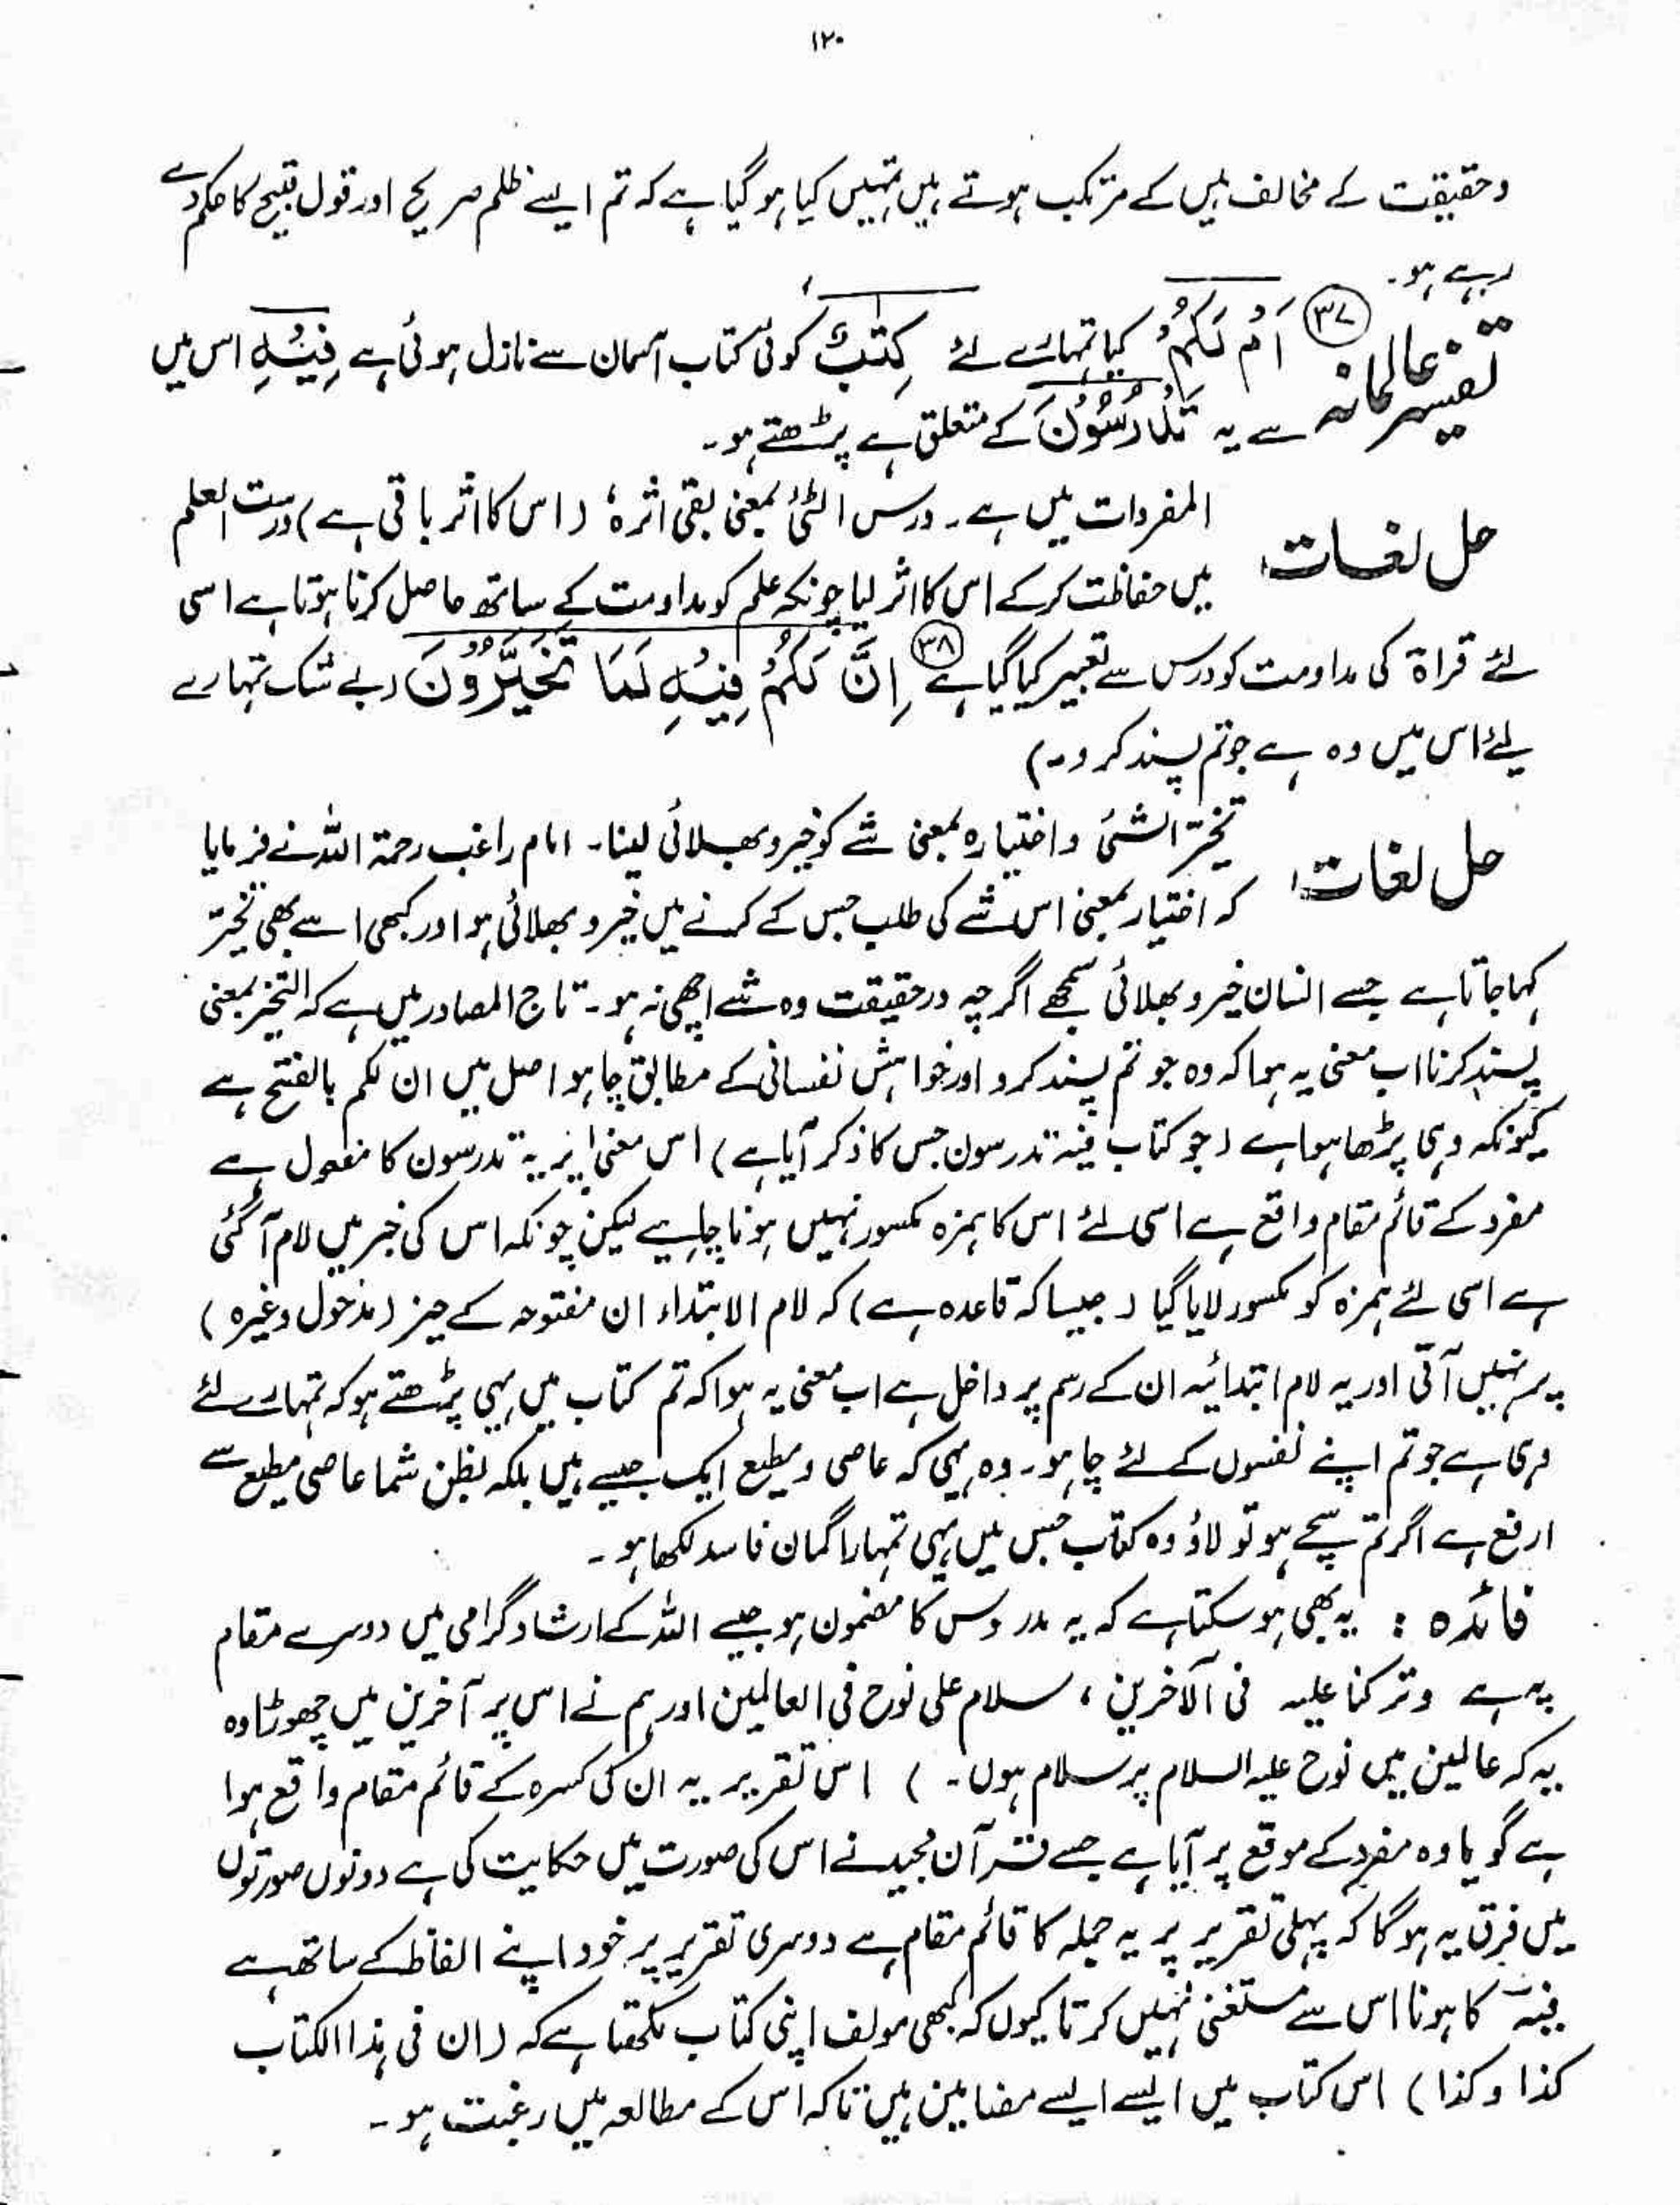 ۱۲۰
وحقیقت کے مخالف ہیں کے مرتکب ہوتے ہیں تمہیں کیا ہو گیا ہے کہ تم ایسے ظلم صریح اور قول قبیح کا حکم دے
رہے ہو۔
تفسیر عالمانہ ۳۷ اَمْ لَكُمْ کیا تمہارے لئے كِتٰبٌ کوئی کتاب آسمان سے نازل ہوئی ہے فِيْهِ اس میں
سے یہ تَدْرُسُوْنَ کے متعلق ہے پڑھتے ہو۔
حل لغات: المفردات میں ہے۔ درس الشئ بمعنی بقی اثرہٗ (اس کا اثر باقی ہے) درست العلم
میں حفاظت کر کے اس کا اثر لیا چونکہ علم کو مداومت کے ساتھ حاصل کرنا ہوتا ہے اسی
لئے قراۃ کی مداومت کو درس سے تعبیر کیا گیا ہے ۳۸ اِنَّ لَكُمْ فِيْهِ لَمَا تَخَيَّرُوْنَ (بے شک تمہارے
لیے اس میں وہ ہے جو تم پسند کرو۔)
حل لغات: تخیّر الشئی واختیارہ بمعنی شے کو خیر و بھلائی لینا۔ امام راغب رحمۃ اللہ نے فرمایا
کہ اختیار بمعنی اس شے کی طلب جس کے کرنے میں خیر و بھلائی ہو اور کبھی اسے بھی تخیّر
کہا جاتا ہے جسے انسان خیر و بھلائی سمجھے اگرچہ درحقیقت وہ شے اچھی نہ ہو۔ تاج المصادر میں ہے کہ التخیّر بمعنی
پسند کرنا اب معنی یہ ہوا کہ وہ جو تم پسند کرو اور خواہش نفسانی کے مطابق چاہو اصل میں ان لکم بالفتح ہے
کیونکہ وہی پڑھا ہوا ہے (جو کتاب فیہ تدرسون جس کا ذکر آیا ہے) اس معنیٰ پر یہ تدرسون کا مفعول ہے
مفرد کے قائم مقام واقع ہے اسی لئے اس کا ہمزہ مکسور نہیں ہونا چاہیے لیکن چونکہ اس کی خبر میں لام آ گئی
ہے اسی لئے ہمزہ کو مکسور لایا گیا (جیسا کہ قاعدہ ہے) کہ لام الابتداء ان مفتوحہ کے حیز (مدخول وغیرہ)
پر نہیں آتی اور یہ لام ابتدائیہ ان کے رسم پر داخل ہے اب معنی یہ ہوا کہ تم کتاب میں یہی پڑھتے ہو کہ تمہارے لئے
وہی ہے جو تم اپنے نفسوں کے لئے چاہو۔ وہ یہی کہ عاصی و مطیع ایک جیسے ہیں بلکہ بظن شما عاصی مطیع سے
ارفع ہے اگر تم سچے ہو تو لاؤ وہ کتاب جس میں یہی تمہارا گمان فاسد لکھا ہو۔
فائدہ : یہ بھی ہو سکتا ہے کہ یہ مدروس کا مضمون ہو جیسے اللہ کے ارشاد گرامی میں دوسرے مقام
پہ ہے وترکنا علیہ فی الآخرین ، سلام علی نوح فی العالمین اور ہم نے اس پر آخرین میں چھوڑا وہ
یہ کہ عالمین میں نوح علیہ السلام پر سلام ہوں۔ ) اس تقریر پہ ان کی کسرہ کے قائم مقام واقع ہوا
ہے گویا وہ مفرد کے موقع پر آیا ہے جسے قرآن مجید نے اس کی صورت میں حکایت کی ہے دونوں صورتوں
میں فرق یہ ہوگا کہ پہلی تقریر پر یہ جملہ کا قائم مقام ہے دوسری تقریر پر خود اپنے الفاظ کے ساتھ ہے
فیہ کا ہونا اس سے مستغنی نہیں کرتا کیوں کہ کبھی مولف اپنی کتاب لکھتا ہے کہ (ان فی ہذا الکتاب
کذا و کذا) اس کتاب میں ایسے ایسے مضامین ہیں تاکہ اس کے مطالعہ میں رغبت ہو۔